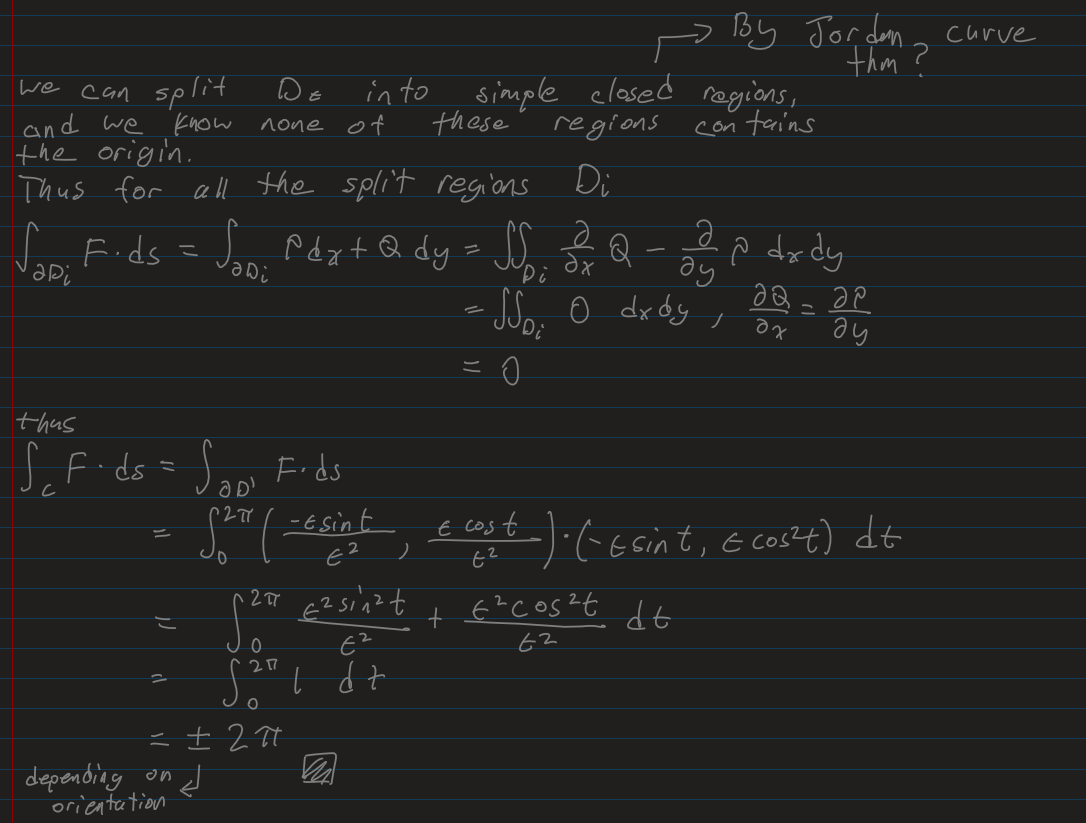 → By Jordan curve
thm?
we can split D_ε into simple closed regions,
and we know none of these regions contains
the origin.
Thus for all the split regions D_i
∫_{∂D_i} F·ds = ∫_{∂D_i} P dx + Q dy = ∬_{D_i} ∂/∂x Q − ∂/∂y P dx dy
= ∬_{D_i} 0 dx dy , ∂Q/∂x = ∂P/∂y
= 0
thus
∫_C F·ds = ∫_{∂D'} F·ds
= ∫_0^{2π} (−ε sin t / ε², ε cos t / ε²)·(−ε sin t, ε cos² t) dt
= ∫_0^{2π} ε² sin² t / ε² + ε² cos² t / ε² dt
= ∫_0^{2π} 1 dt
= ± 2π
depending on
orientation